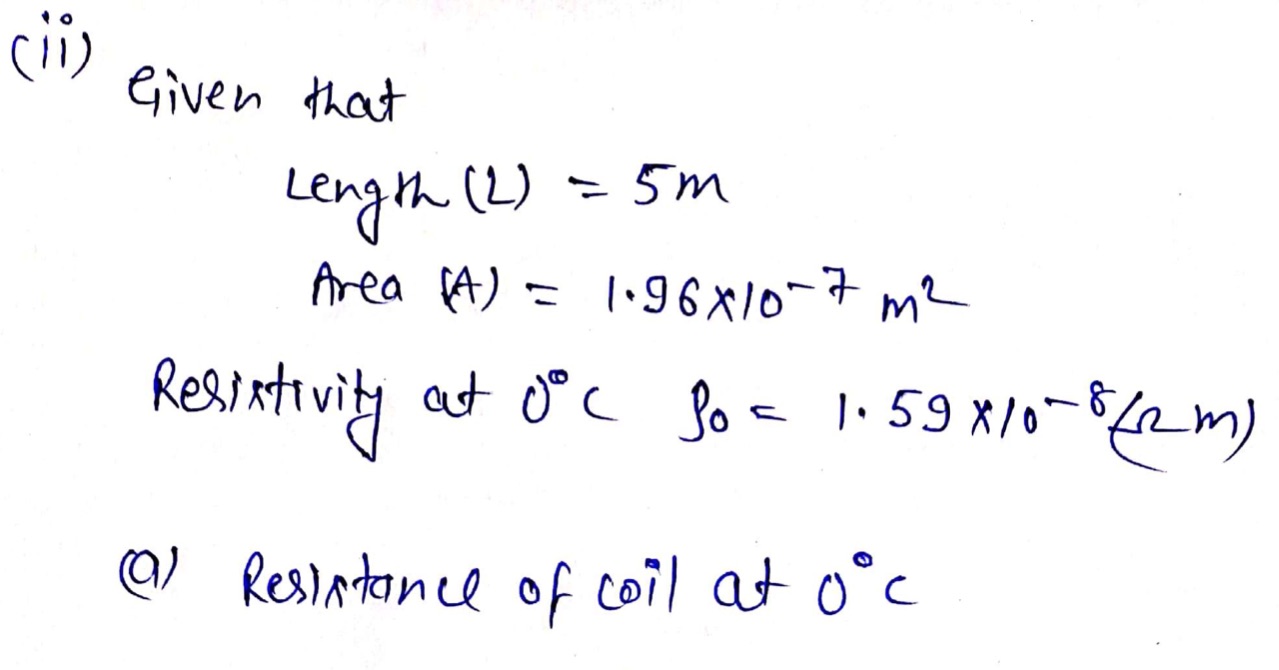 (ii)
Given that
Length (L) = 5m
Area (A) = 1.96×10⁻⁷ m²
Resistivity at 0°C ρ₀ = 1.59×10⁻⁸ (Ωm)
(a) Resistance of coil at 0°C